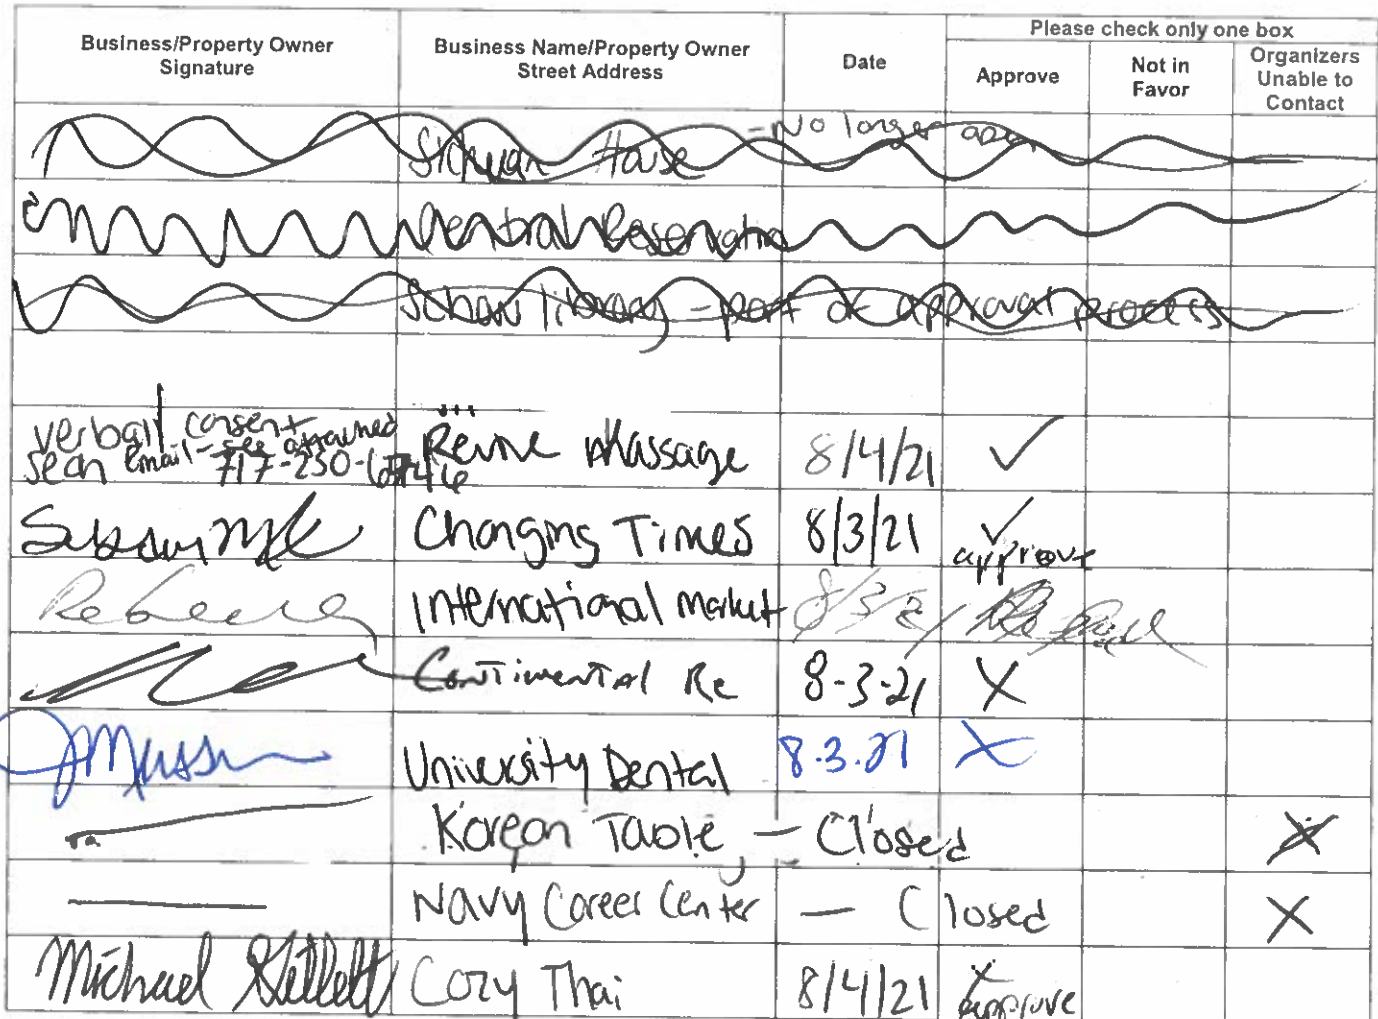 Please check only one box
Business/Property Owner
Signature
Business Name/Property Owner
Street Address
Date
Approve
Not in
Favor
Organizers
Unable to
Contact
House - No longer open
Central Reservation
Schow library - part of approval process
verball consent
Sean email - see attached
717-250-
Massage 8/4/21 ✓
Susan Changing Times 8/3/21 ✓
approve
Rebecca International Market 8/3/21
Continental Re 8-3-21 X
University Dental 8.3.21 X
Korean Table - Closed X
Navy Career Center - Closed X
Michael Cozy Thai 8/4/21 X
approve